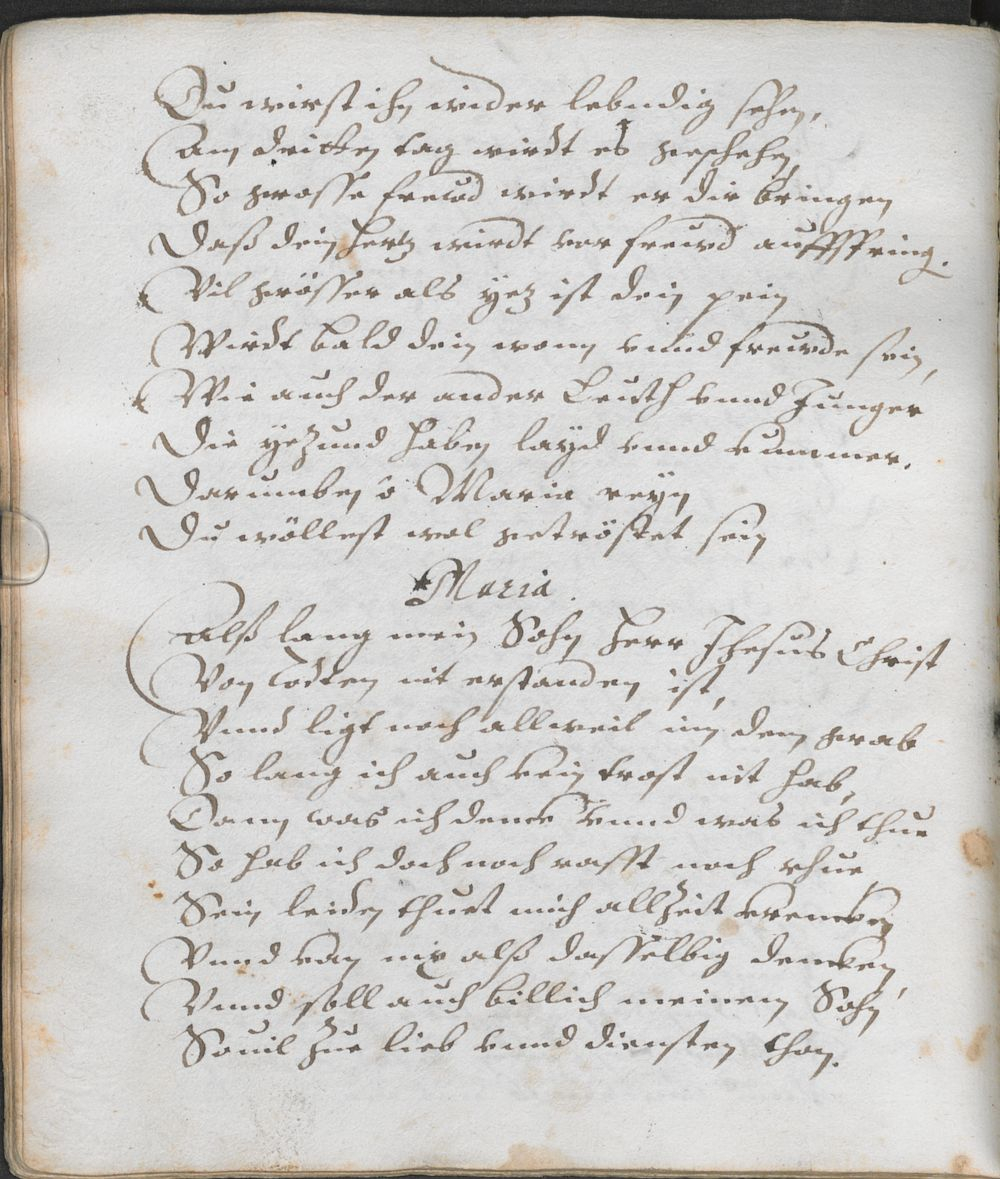 Du wirst ihn wider lebndig sehen,
Am dritten tag wirdt es geschehen,
So grosse freud wirdt er dir bringen
Daß dein hertz wirdt vor freud auffspring.
Vil grösser als yetz ist dein pein
Wirdt bald dein wonn vnnd freude sein,
Wie auch der ander Leuth vnnd Junger
Die yetzund haben layd vnnd kummer.
Darumben o Maria reyn
Du wöllest wol getröstet sein
Maria.
Alß lang mein Sohn Herr Jhesus Christ
Von Todten nit erstanden ist,
Vnnd ligt noch allweil inn dem grab
So lang ich auch kein trost nit hab,
Dann was ich denck vnnd was ich thue
So hab ich doch noch rasst noch rhue
Sein leiden thuet mich allzeit krencken
Vnnd kan nix alß dasselbig dencken,
Vnnd soll auch billich meinem Sohn
Souil zue lieb vnnd diensten thon.